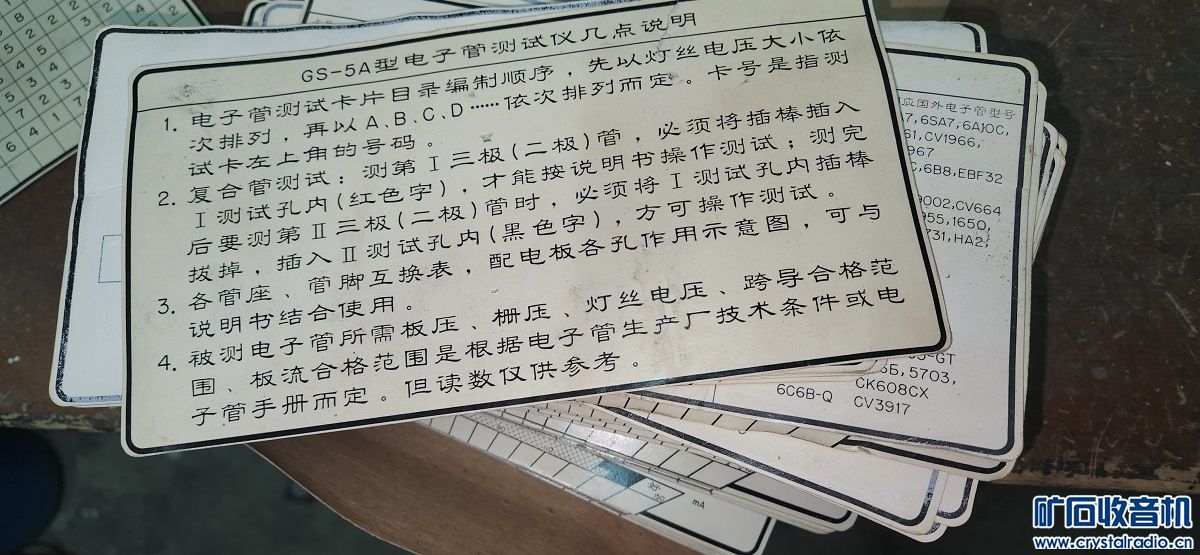 GS-5A型电子管测试仪几点说明
1. 电子管测试卡片目录编制顺序，先以灯丝电压大小依
次排列，再以A、B、C、D……依次排列而定。卡号是指测
试卡左上角的号码。
2. 复合管测试：测第Ⅰ三极(二极)管，必须将插棒插入
Ⅰ测试孔内(红色字)，才能按说明书操作测试；测完
后要测第Ⅱ三极(二极)管时，必须将Ⅰ测试孔内插棒
拔掉，插入Ⅱ测试孔内(黑色字)，方可操作测试。
3. 各管座、管脚互换表，配电板各孔作用示意图，可与
说明书结合使用。
4. 被测电子管所需板压、栅压、灯丝电压、跨导合格范
围、板流合格范围是根据电子管生产厂技术条件或电
子管手册而定。但读数仅供参考。
应国外电子管型号
6SA7,6A10C,
CV1966,
967
6B8,EBF32
9002,CV664
955,1650,
731,HA2,
-GT
5703,
6C6B-Q CK608CX
CV3917
好
150
mA
矿石收音机
www.crystalradio.cn